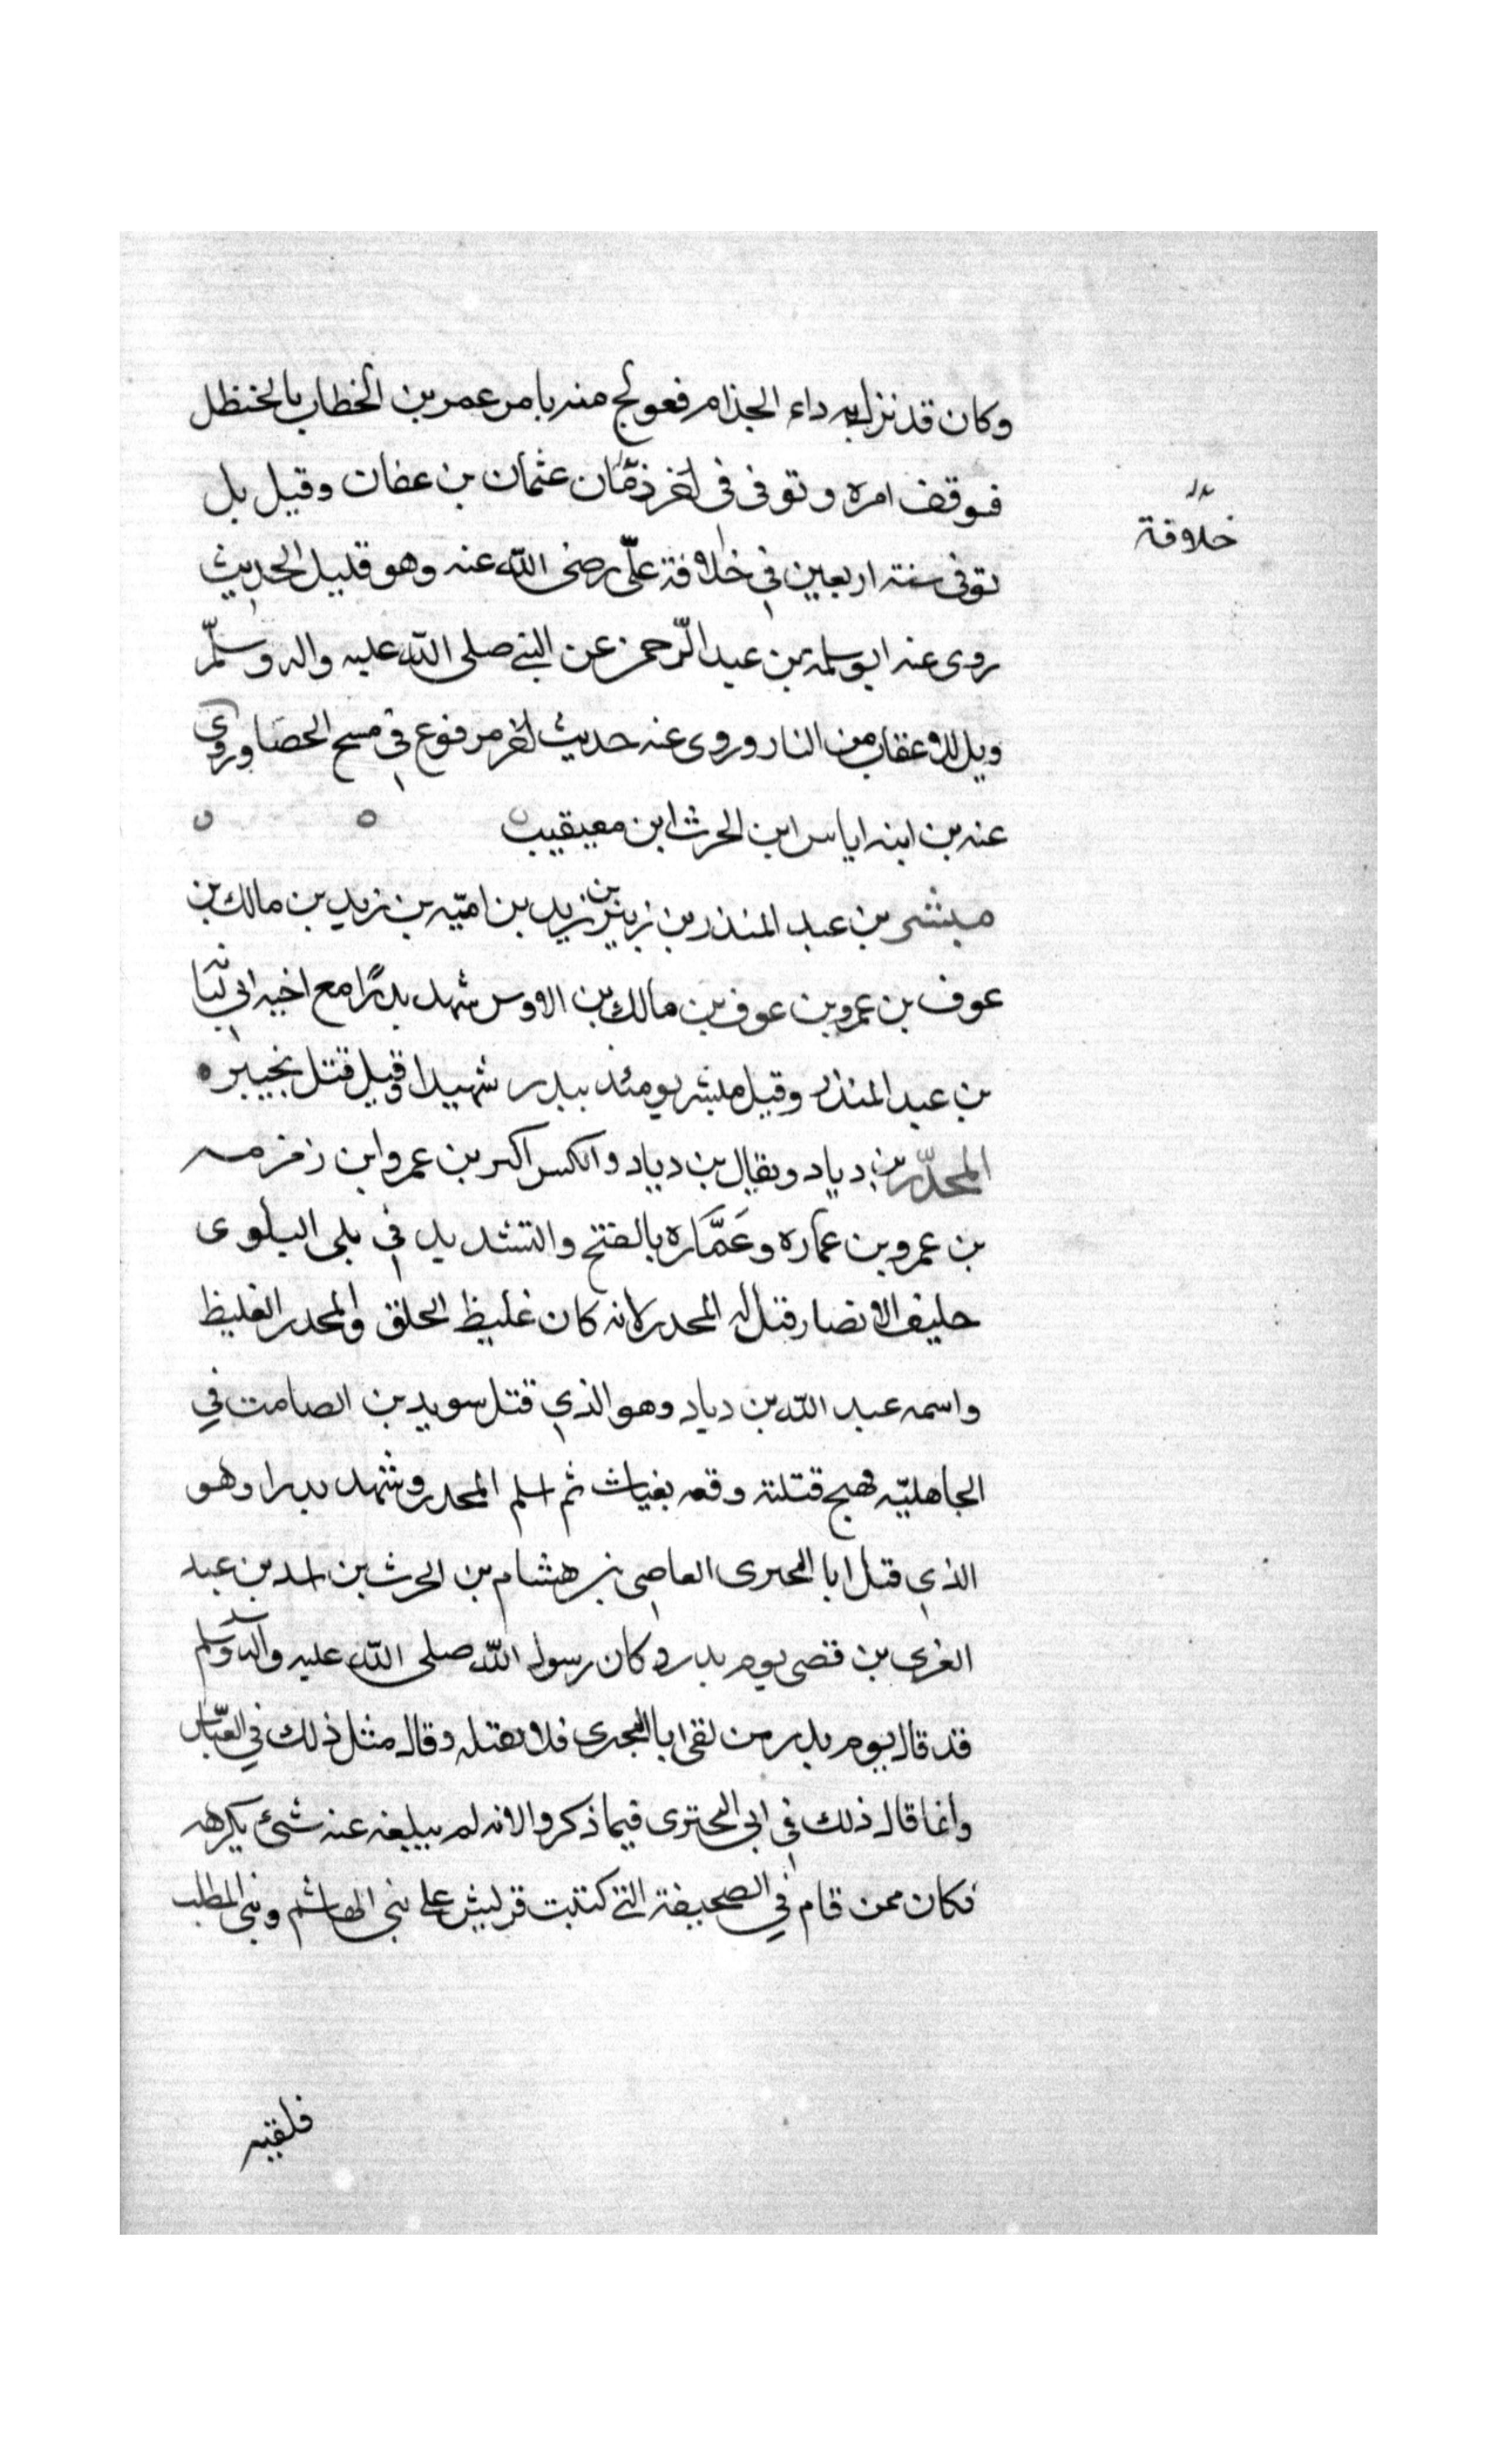 وكان قد نزل به داء الجذام فعولج منه بامر عمر بن الخطاب بالحنظل
فوقف امره وتوفى فى اخر زمان عثمان بن عفان وقيل بل
خلافة
توفى سنة اربعين في خلافة علىّ رضى الله عنه وهو قليل الحديث
روى عنه ابو سلمة بن عبد الرّحمن عن النبي صلى الله عليه واله وسلّم
ويل للاعقاب من النار وروى عنه حديث اخر مرفوع في مسح الحصا وروى
عنه بن ابنه اياس ابن الحرث ابن معيقيب
مبشر بن عبد المنذر بن زيد بن اميّه بن زيد بن مالك بن
عوف بن عمرو بن عوف بن مالك بن الاوس شهد بدرًا مع اخيه ابي لبابة
بن عبد المنذر وقيل مبشر يومئذ ببدر شهيدا وقيل قتل بخيبر
المحدّر بن دياد ويقال بن دياد والكسر اكبر بن عمرو ابن زمزمه
بن عمرو بن عماره وعَمَّاره بالفتح والتشديد في بلى البلوى
حليف الانصار قتل له المحدر لانه كان غليظ الخلق والمحدر الغليظ
واسمه عبد الله بن دياد وهو الذي قتل سويد بن الصامت في
الجاهليّه فهيج قتلته وقعه بغياث ثم اسلم المحدر وشهد بدرا وهو
الذي قتل ابا البحترى العاصي بن هشام بن الحرث بن اسد بن عبد
العزى بن قصى يوم بدر وكان رسول الله صلى الله عليه واله وسلم
قد قال يوم بدر من لقى ابا البحترى فلا يقتله وقال مثل ذلك في العبّاس
وانما قال ذلك في ابي البحترى فيما ذكروا لانه لم يبلغه عنه شئ يكرهه
فكان ممن قام في الصحيفة التي كتبت قريش على بني الهاشم وبني المطلب
فلقيه